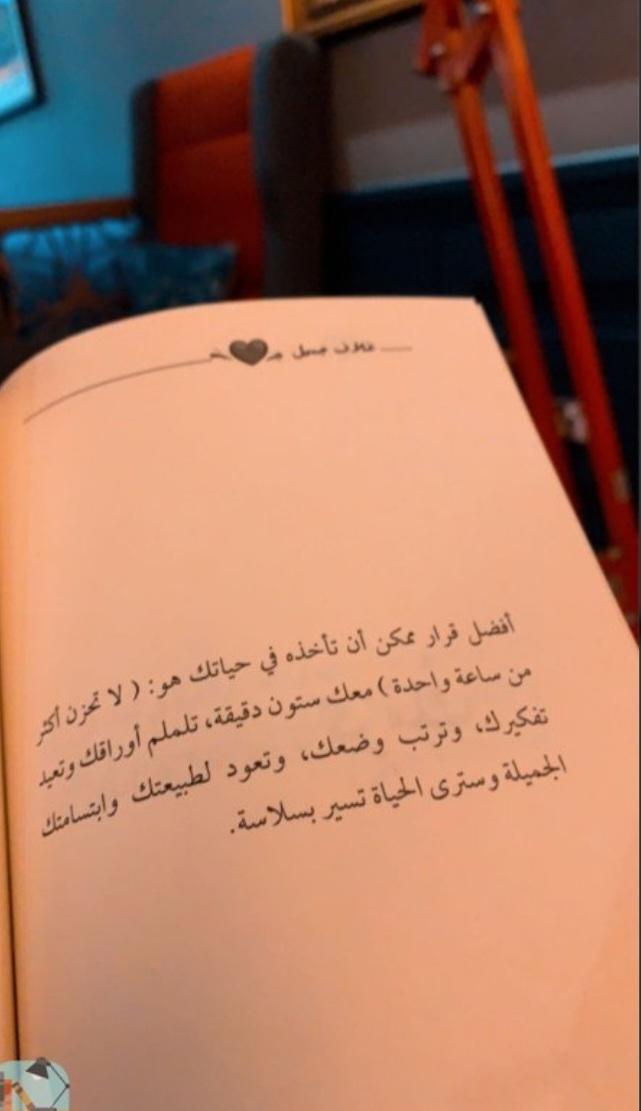 أفضل قرار ممكن أن تأخذه في حياتك هو: ( لا تحزن أكثر
من ساعة واحدة ) معك ستون دقيقة، تلملم أوراقك وتعيد
تفكيرك، وترتب وضعك، وتعود لطبيعتك وابتسامتك
الجميلة وسترى الحياة تسير بسلاسة.